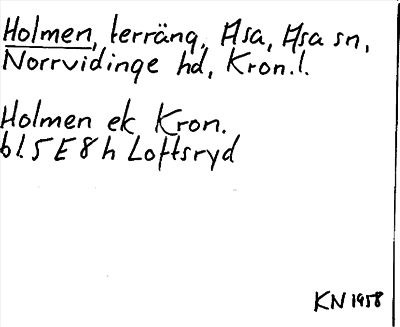 Holmen, terräng, Asa, Asa sn,
Norrvidinge hd, Kron.l.
Holmen ek Kron.
bl. 5 E 8 h Loftsryd
KN 1958